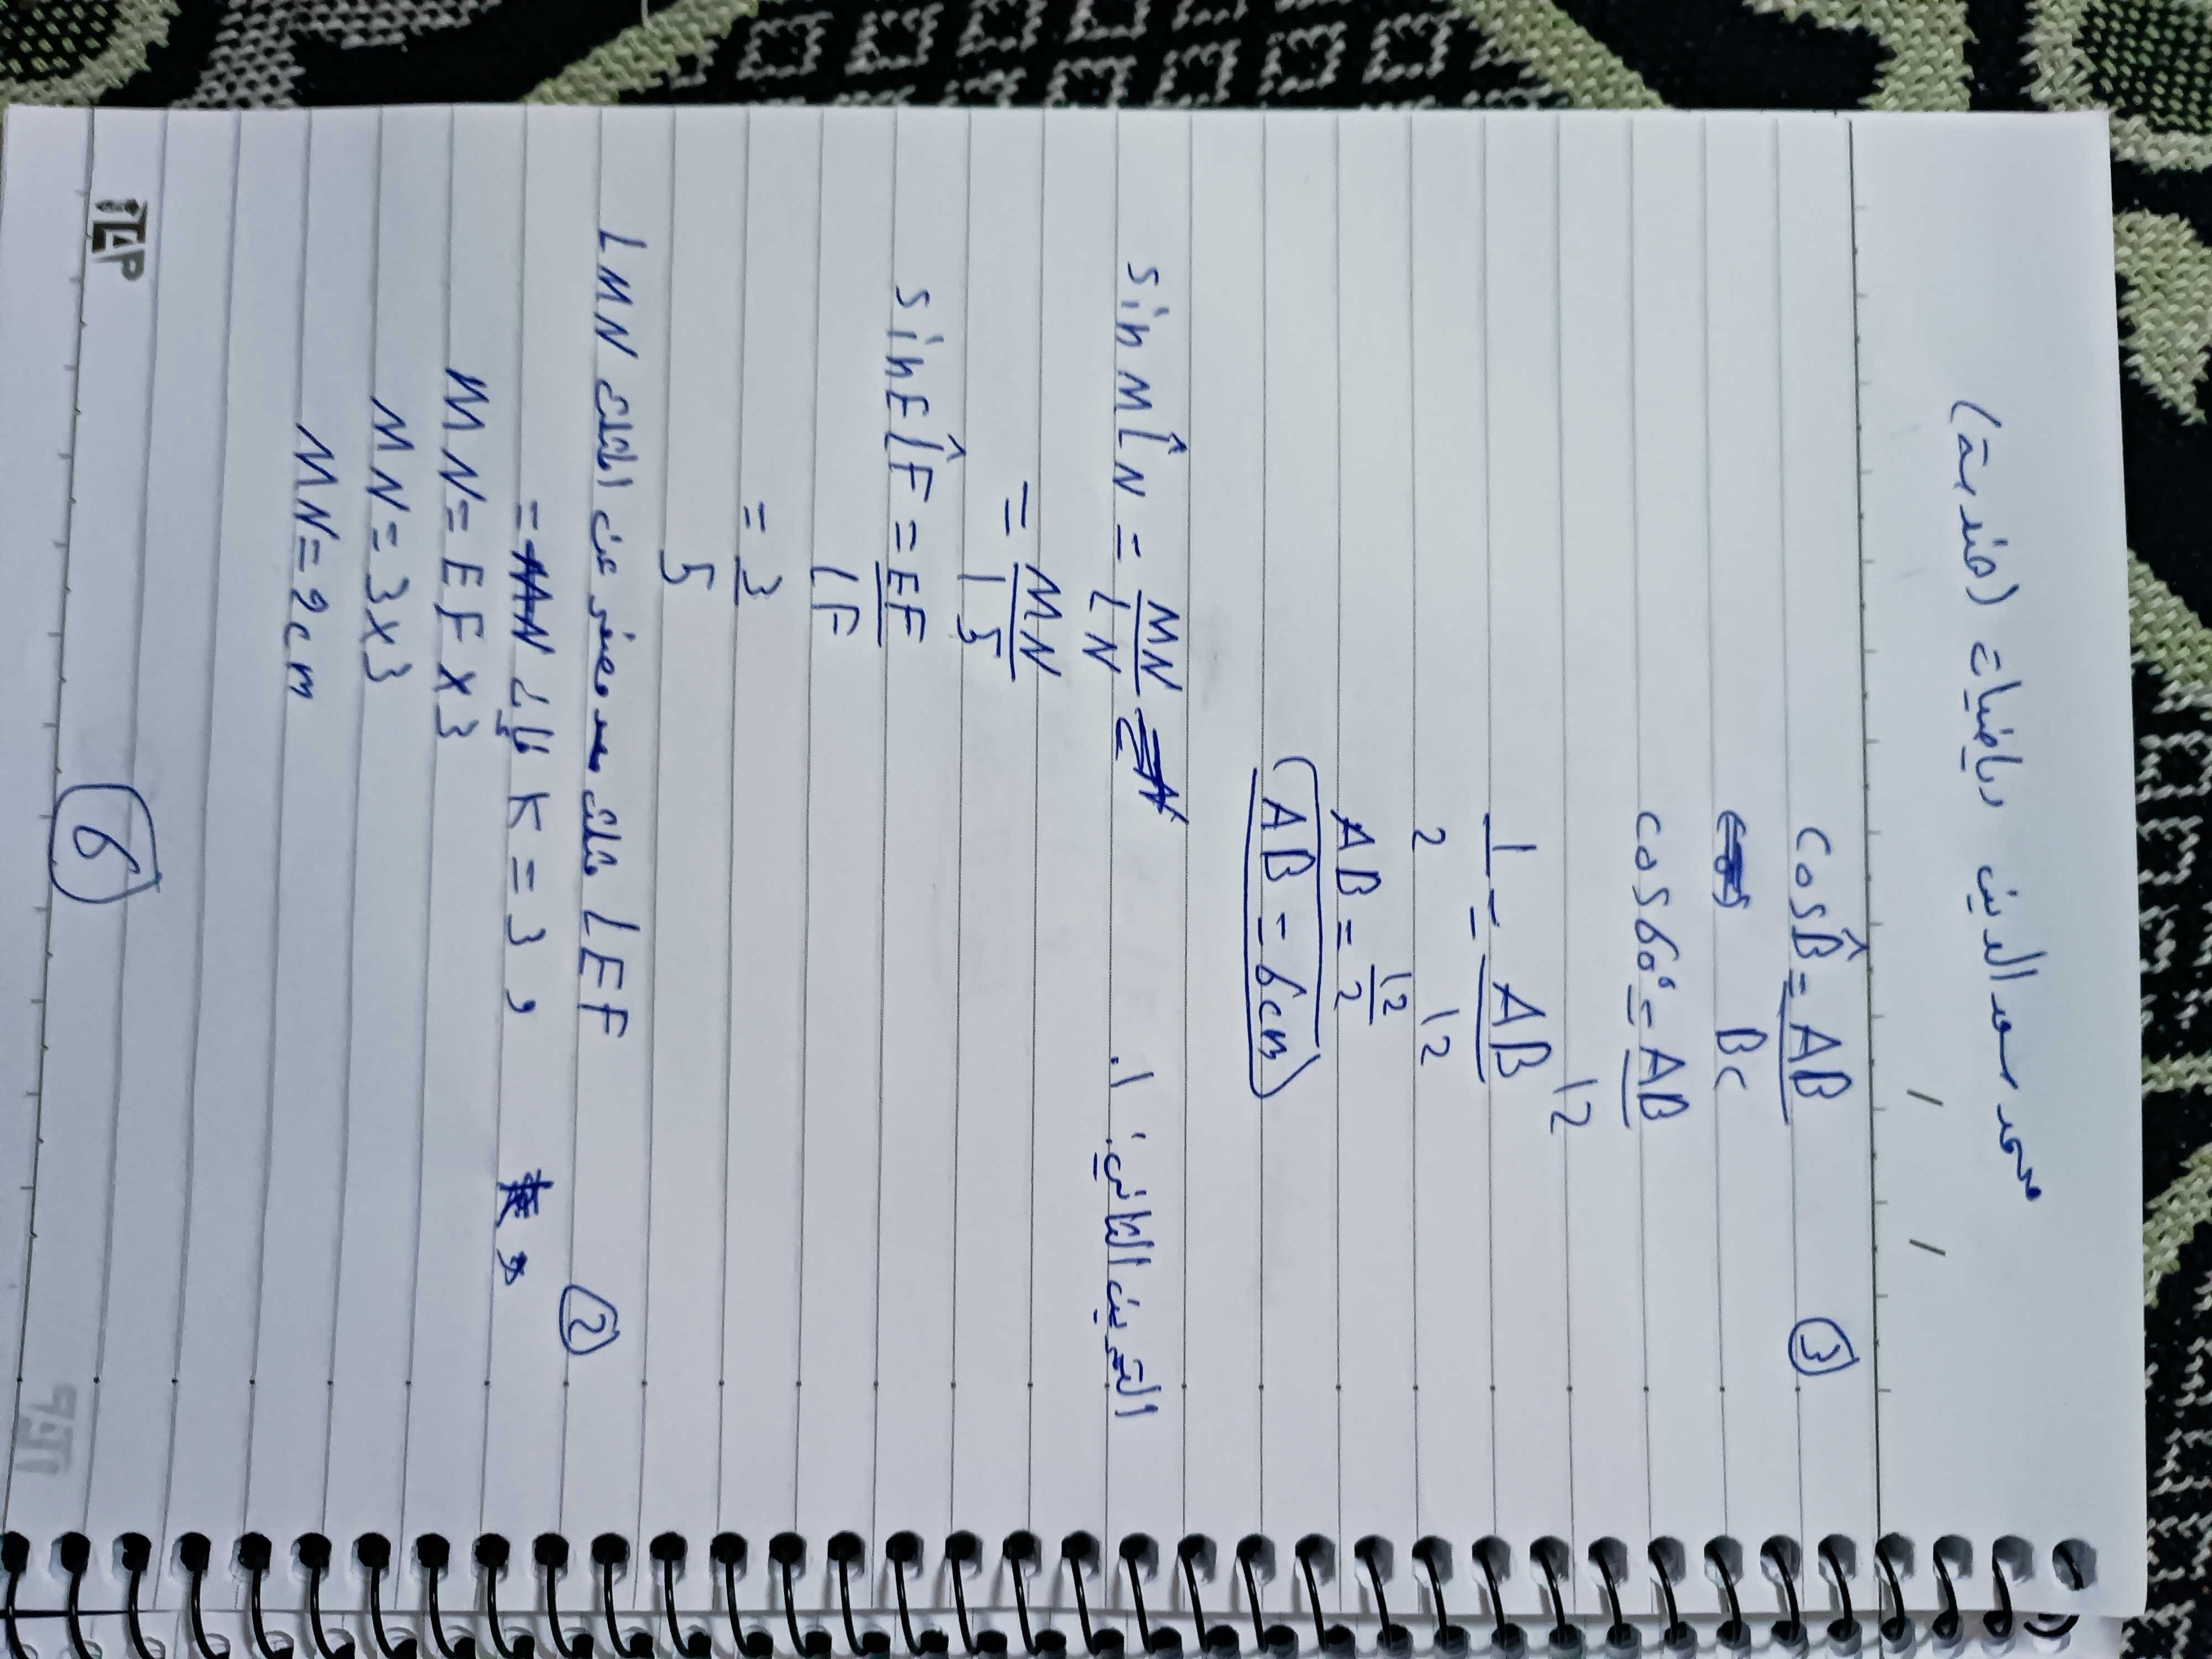 محمد سعد الدين رياضيات (هندسة)
/ /
③ cos B̂ = AB
BC
cos 60° = AB
12
1 = AB
2 12
AB = 12
2
AB = 6cm
التمرين الثاني: 1.
sin ML̂N = MN
LN
= MN
15
sin EL̂F = EF
LF
= 3
5
② LEF مثلث مصغر عن المثلث LMN
K = 3 ,
MN = EF x 3
MN = 3 x 3
MN = 2cm
6